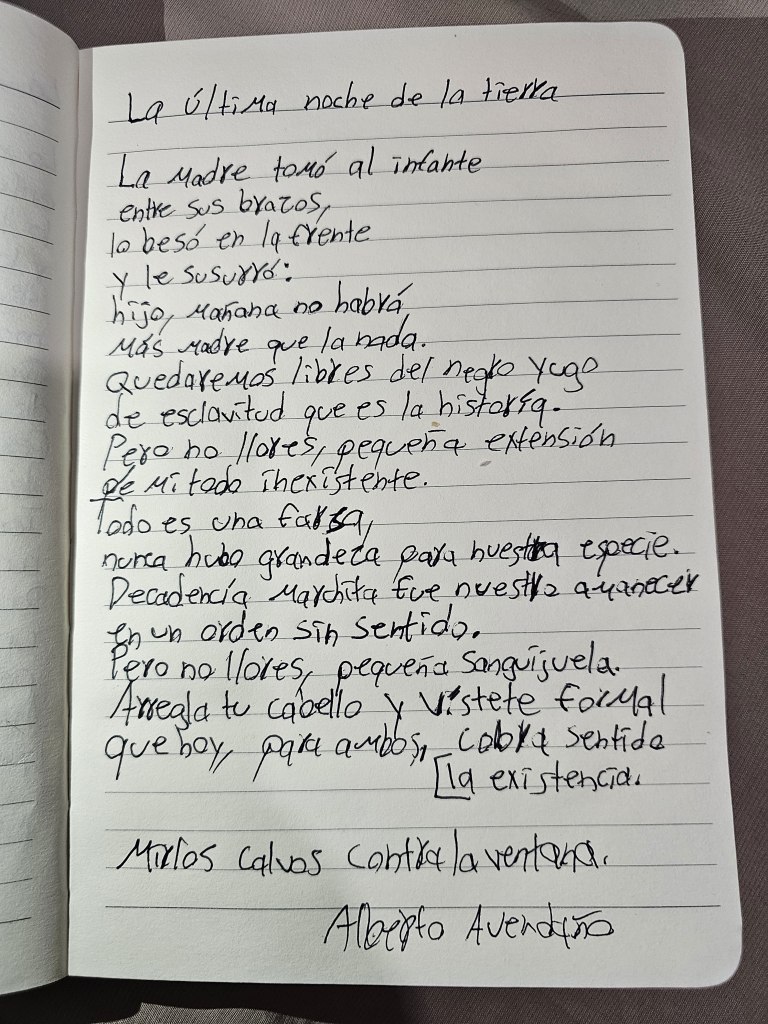 La última noche de la tierra
La madre tomó al infante
entre sus brazos,
lo besó en la frente
y le susurró:
hijo, mañana no habrá
más madre que la nada.
Quedaremos libres del negro yugo
de esclavitud que es la historia.
Pero no llores, pequeña extensión
de mi todo inexistente.
Todo es una farsa,
nunca hubo grandeza para nuestra especie.
Decadencia marchita fue nuestro amanecer
en un orden sin sentido.
Pero no llores, pequeña sanguijuela.
Arregla tu cabello y vístete formal
que hoy, para ambos, cobra sentido
[la existencia.
Mirlos calvos contra la ventana.
Alberto Avendaño